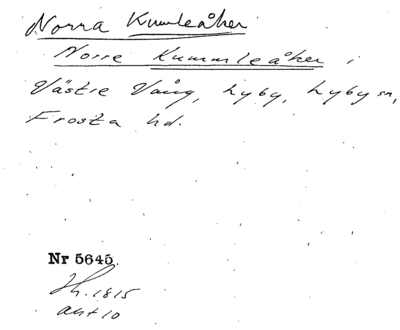 Norra Kumleåker
Norre Kummleåker i
Västre Vång, Lyby, Lyby sn,
Frosta hd.
Nr 5645.
Jh. 1815
akt 10